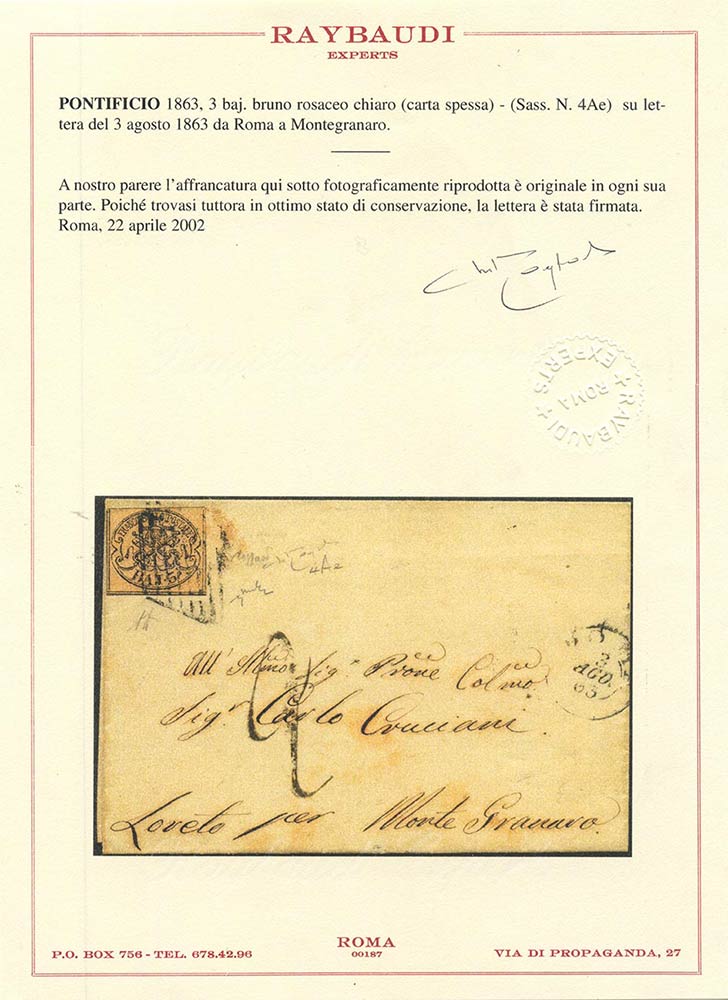 RAYBAUDI
EXPERTS
PONTIFICIO 1863, 3 baj. bruno rosaceo chiaro (carta spessa) - (Sass. N. 4Ae) su let-
tera del 3 agosto 1863 da Roma a Montegranaro.
A nostro parere l'affrancatura qui sotto fotograficamente riprodotta è originale in ogni sua
parte. Poiché trovasi tuttora in ottimo stato di conservazione, la lettera è stata firmata.
Roma, 22 aprile 2002
RAYBAUDI EXPERTS
ROMA
4Ae
3
AGO.
63
All' Sig.r Prone Colmo
Sig.r Carlo Cruciani.
Loreto per Monte Granaro.
ROMA
00187
P.O. BOX 756 - TEL. 678.42.96
VIA DI PROPAGANDA, 27